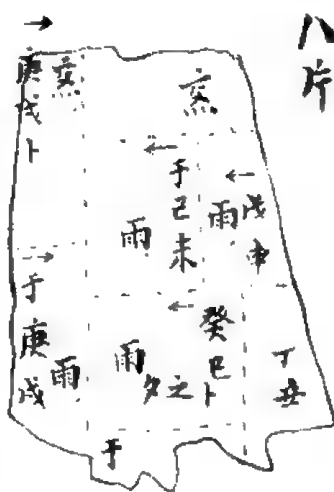 八片
庚戌卜
于己未
雨
戊申
雨
于庚戌
雨
癸巳卜
之夕
雨
丁丑
于